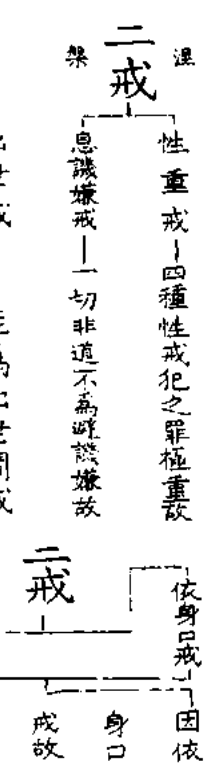 涅槃
二戒
性重戒—四種性戒犯之罪極重故
息譏嫌戒—一切非道不為避譏嫌故
二戒
依身口戒
因依
身口
戒故